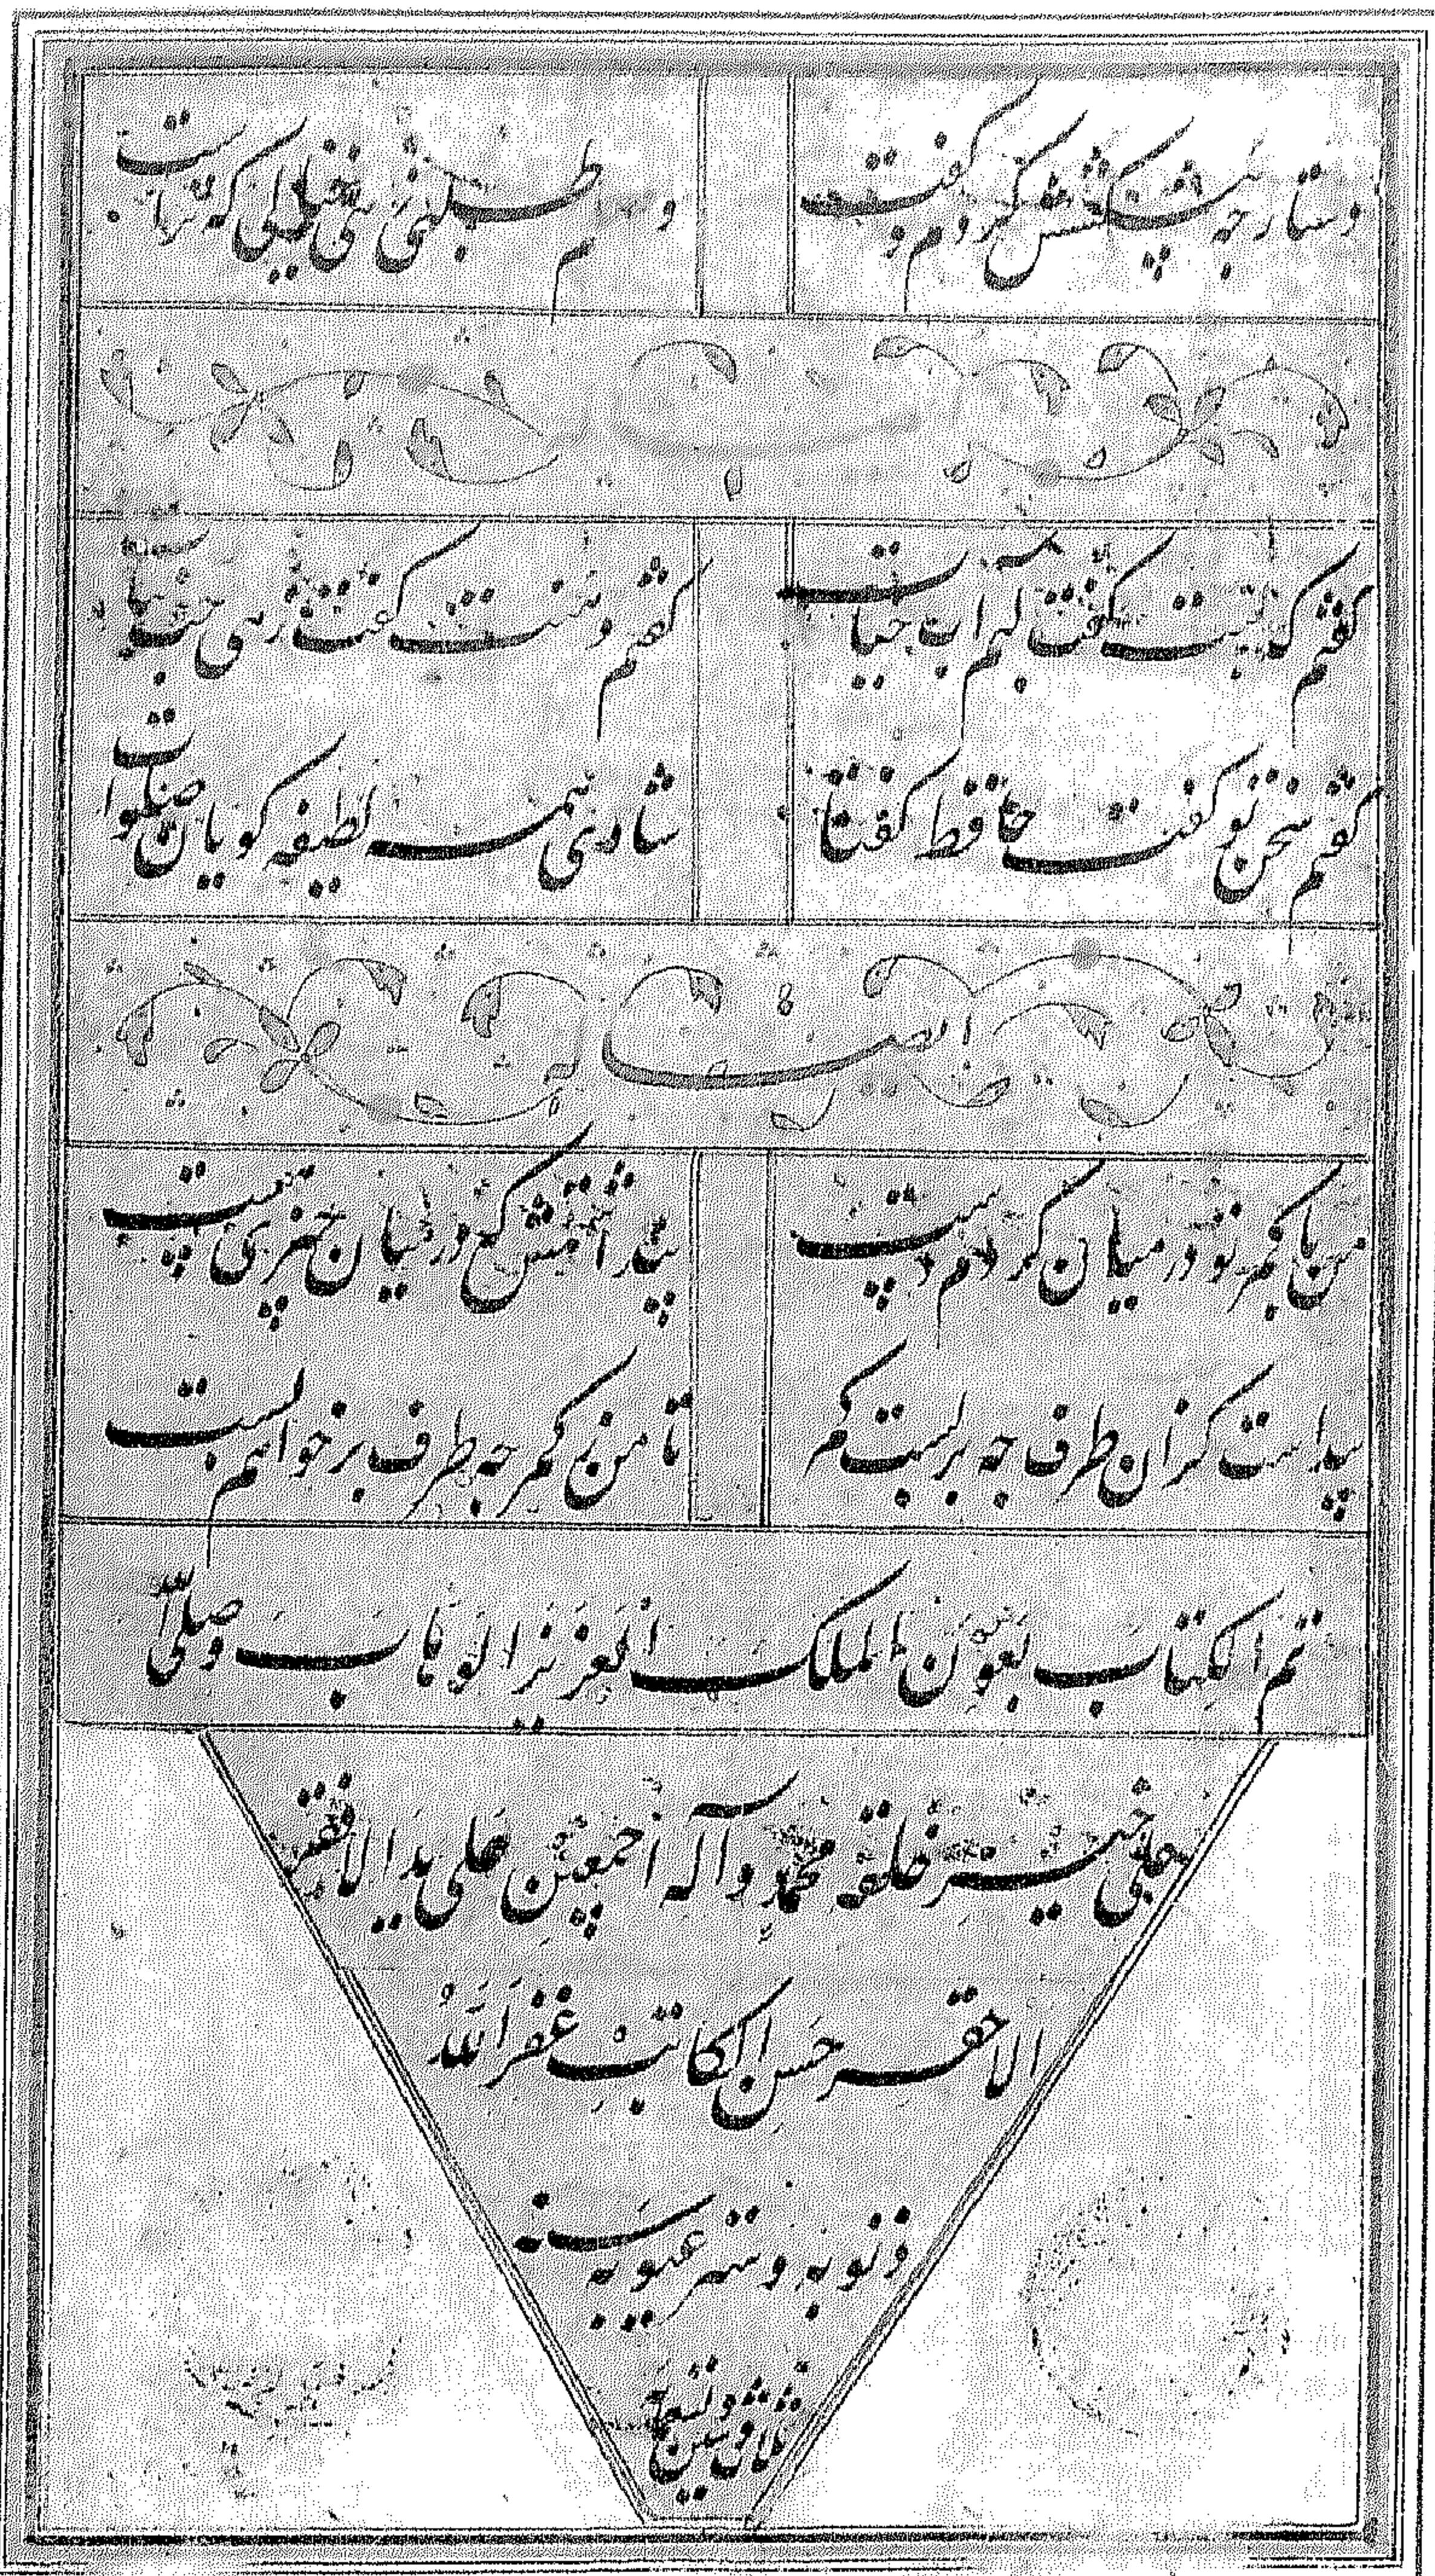 دستارچه پیشکشش کردم گفت
وصلم طلبی زهی خیالی که تراست
گفتم که لبت گفت لبم آب حیات
گفتم دهنت گفت زهی حب نبات
گفتم سخن تو گفت حافظ گفتا
شادی همه لطیفه کویان صلوات
من با کمر تو در میان کردم دست
پنداشتمش که در میان چیزی هست
پیداست کزان طرف چه بربست کمر
تا من ز کمر چه طرف بر خواهم بست
تم الکتاب بعون الملک العزیز الوهاب وصلی الله
علی خیر خلقه محمد وآله اجمعین علی ید الافقر
الاحقر حسن الکاتب غفر الله
ذنوبه وستر عیوبه سنه